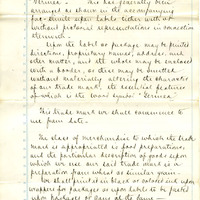 "Cermea" - This has generally been
arranged as shown in the accompanying
fac-simile upon labels either with or
without pictorial representations in connection
therewith.-
Upon the label or package may be printed
directions, proprietary names, address, and
other matter, and the whole may be enclosed
with a border, or these may be omitted
without materially altering the character
of our trade mark, the essential features
of which is the word symbol
This trade mark we shall commence to
use from date.-
The class of merchandise to which the trade
mark is appropriated is food preparations,
and the particular description of goods upon
which we use our said trade mark is a
preparation from wheat or similar grain.-
We shall print it in black or colored ink upon
wrappers for packages or upon labels to be pasted
upon packages or cans of the same.-